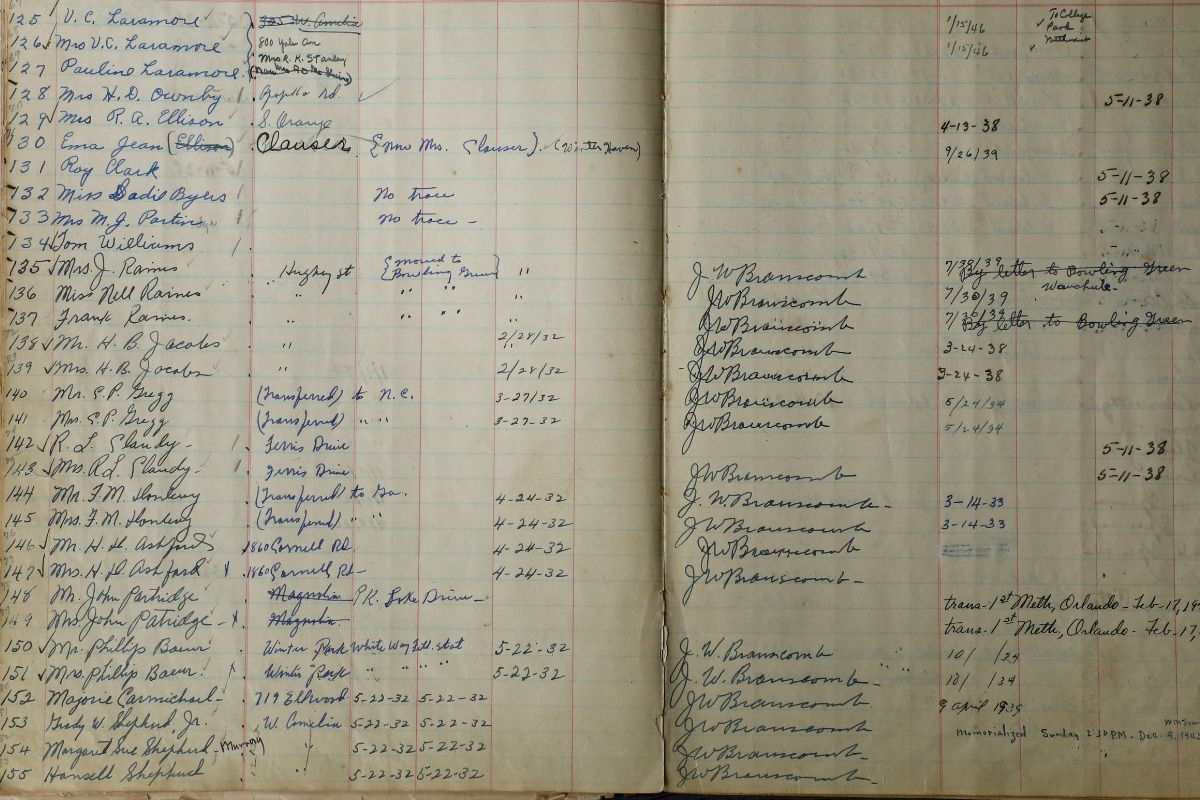 125 V. C. Laramore 305 W. Amelia 1/15/46 To College Park Methodist
126 Mrs V. C. Laramore 800 Yale Ave 1/15/46
127 Pauline Laramore Mrs R. K. Stanley
128 Mrs H. D. Ownby Apopka Rd. 5-11-38
129 Mrs R. A. Ellison S. Orange 4-13-38
130 Ema Jean (Ellison) Clauser (now Mrs. Clauser) (Winter Haven) 9/26/39
131 Roy Clark 5-11-38
132 Miss Sadie Byers No trace 5-11-38
133 Mrs M. J. Partin No trace -
134 Tom Williams
135 Mrs. J. Raines Hughey st {moved to Bowling Green} " J. W Branscomb 7/30/39 By letter to Bowling Green
136 Miss Nell Raines " " " " " JWBranscomb 7/30/39 Wauchula-
137 Frank Raines. " " " " " JWBranscomb 7/30/39 By letter to Bowling Green
138 Mr. H. B. Jacobs " 2/28/32 JWBranscomb 3-24-38
139 Mrs. H. B. Jacobs " 2/28/32 JWBranscomb 3-24-38
140 Mr. E. P. Gregg (Transferred) to N.C. 3-27/32 JWBranscomb 5/24/34
141 Mrs. E. P. Gregg (Transferred) " " 3-27-32 JWBranscomb 5/24/34
142 R. L. Clandy - Ferris Drive 5-11-38
143 Mrs. R. L. Clandy - Ferris Drive JWBranscomb 5-11-38
144 Mr. F. M. (Transferred) to Ga. 4-24-32 J. W. Branscomb- 3-14-33
145 Mrs. F. M. (Transferred) " " 4-24-32 JWBranscomb 3-14-33
146 Mr. H. H. Ashford 1860 Cornell Rd. 4-24-32 JWBranscomb
147 Mrs. H. H. Ashford x 1860 Cornell Rd- 4-24-32 JWBranscomb-
148 Mr. John Partridge Magnolia Pk. Lake Drive- trans-1st Meth, Orlando - Feb-17, 19
149 Mrs. John Patridge - x. Magnolia. trans-1st Meth, Orlando - Feb-17,
150 Mr. Phillip Baur Winter Park White Way Fill. stat 5-22-32 J. W. Branscomb 10/ /34
151 Mrs. Phillip Baur. x Winter Park " " " " 5-22-32 J. W. Branscomb- 10/ /34
152 Marjorie Carmichael- 719 Ellwood 5-22-32 5-22-32 JWBranscomb- 9 April 1939
153 Grady W. Shepherd Jr. W. Amelia 5-22-32 5-22-32 JWBranscomb- Memorialized Sunday 2:30 P.M. - Dec. 9,
154 Margaret Sue Shepherd - " 5-22-32 5-22-32 JWBranscomb-
155 Hansell Shepherd " 5-22-32 5-22-32 JWBranscomb-